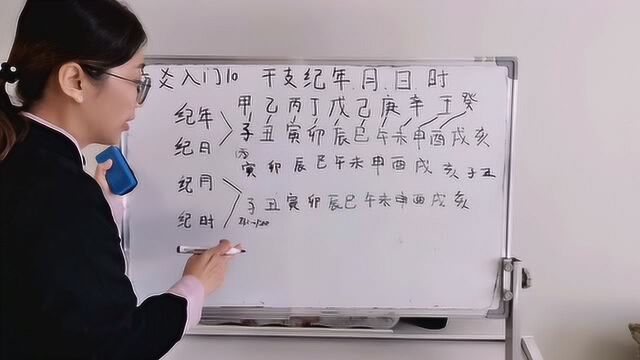 爻入门10 干支纪年.月.日.时
甲乙丙丁戊己庚辛丁癸
纪年
子丑寅卯辰巳午未申酉戌亥
纪日
丙
寅卯辰巳午未申酉戌亥子丑
纪月
子丑寅卯辰巳午未申酉戌亥
纪时